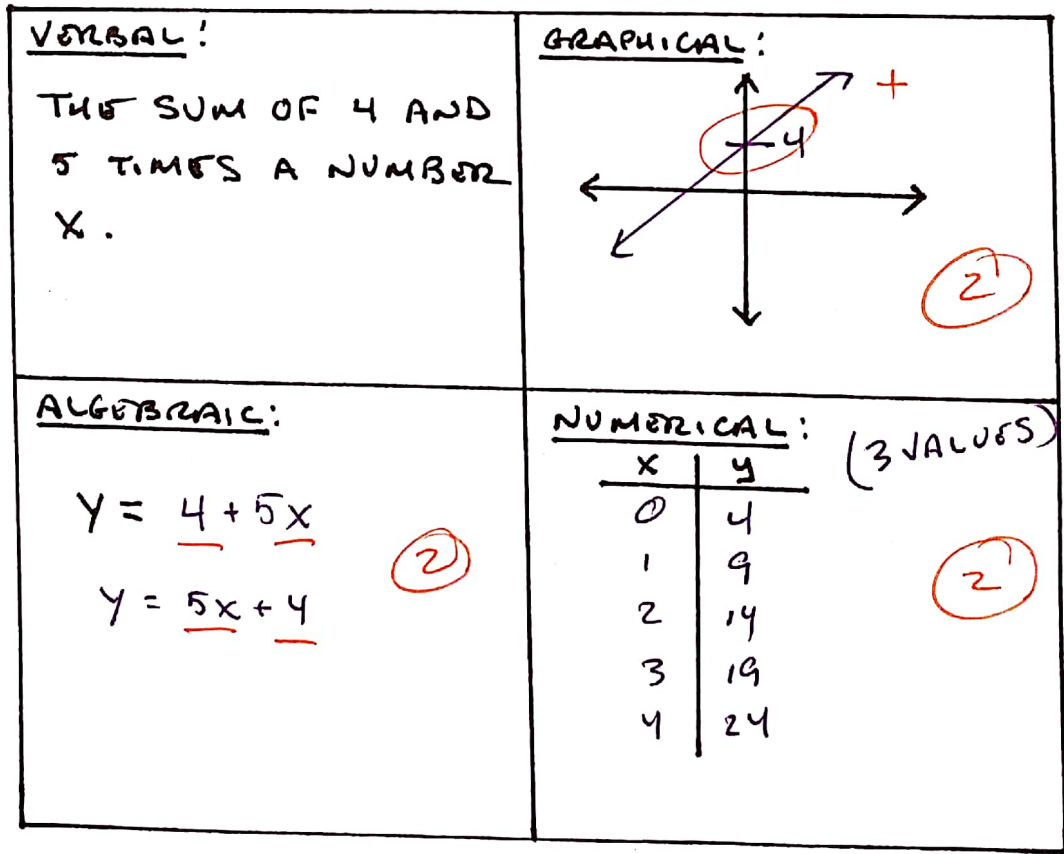 VERBAL:
THE SUM OF 4 AND
5 TIMES A NUMBER
X.
GRAPHICAL:
+
4
2
ALGEBRAIC:
Y = 4 + 5x
Y = 5x + 4
2
NUMERICAL: (3 VALUES)
x y
0 4
1 9
2 14
3 19
4 24
2